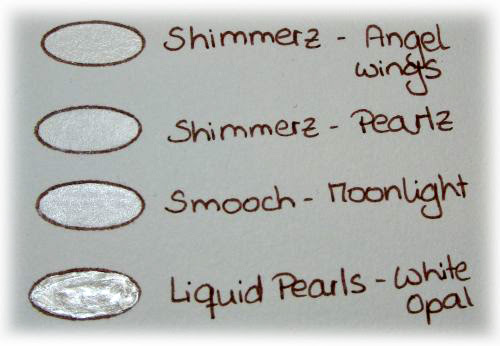 Shimmerz - Angel
wings
Shimmerz - Pearlz
Smooch - Moonlight
Liquid Pearls - White
Opal